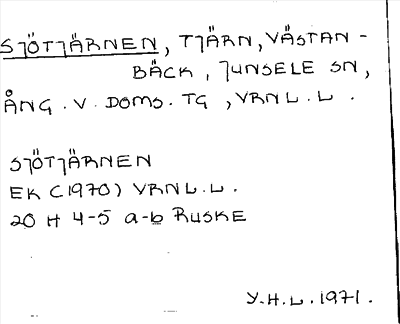 SJÖTJÄRNEN, TJÄRN, VÄSTAN-
BÄCK, JUNSELE SN,
ÅNG. V. DOMS. TG, VRNL.L.
SJÖTJÄRNEN
EK (1970) VRNL.L.
20 H 4-5 a-b RUSKE
Y.H.L. 1971.